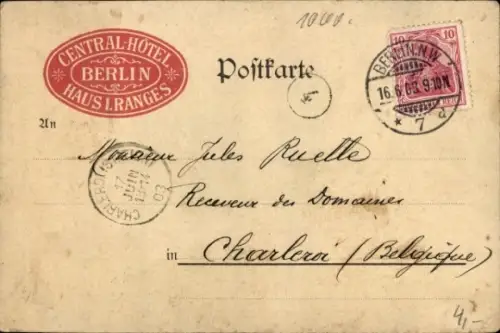 1000.
CENTRAL-HOTEL
BERLIN
HAUS I. RANGES
Postkarte
10
BERLIN N.W.
16.6.03. 9-10N.
* 7 d
4
An
Monsieur Jules Ruelle
CHARLEROI
17
JUIN
03
Receveur des Domaines
in Charleroi (Belgique)
4,-